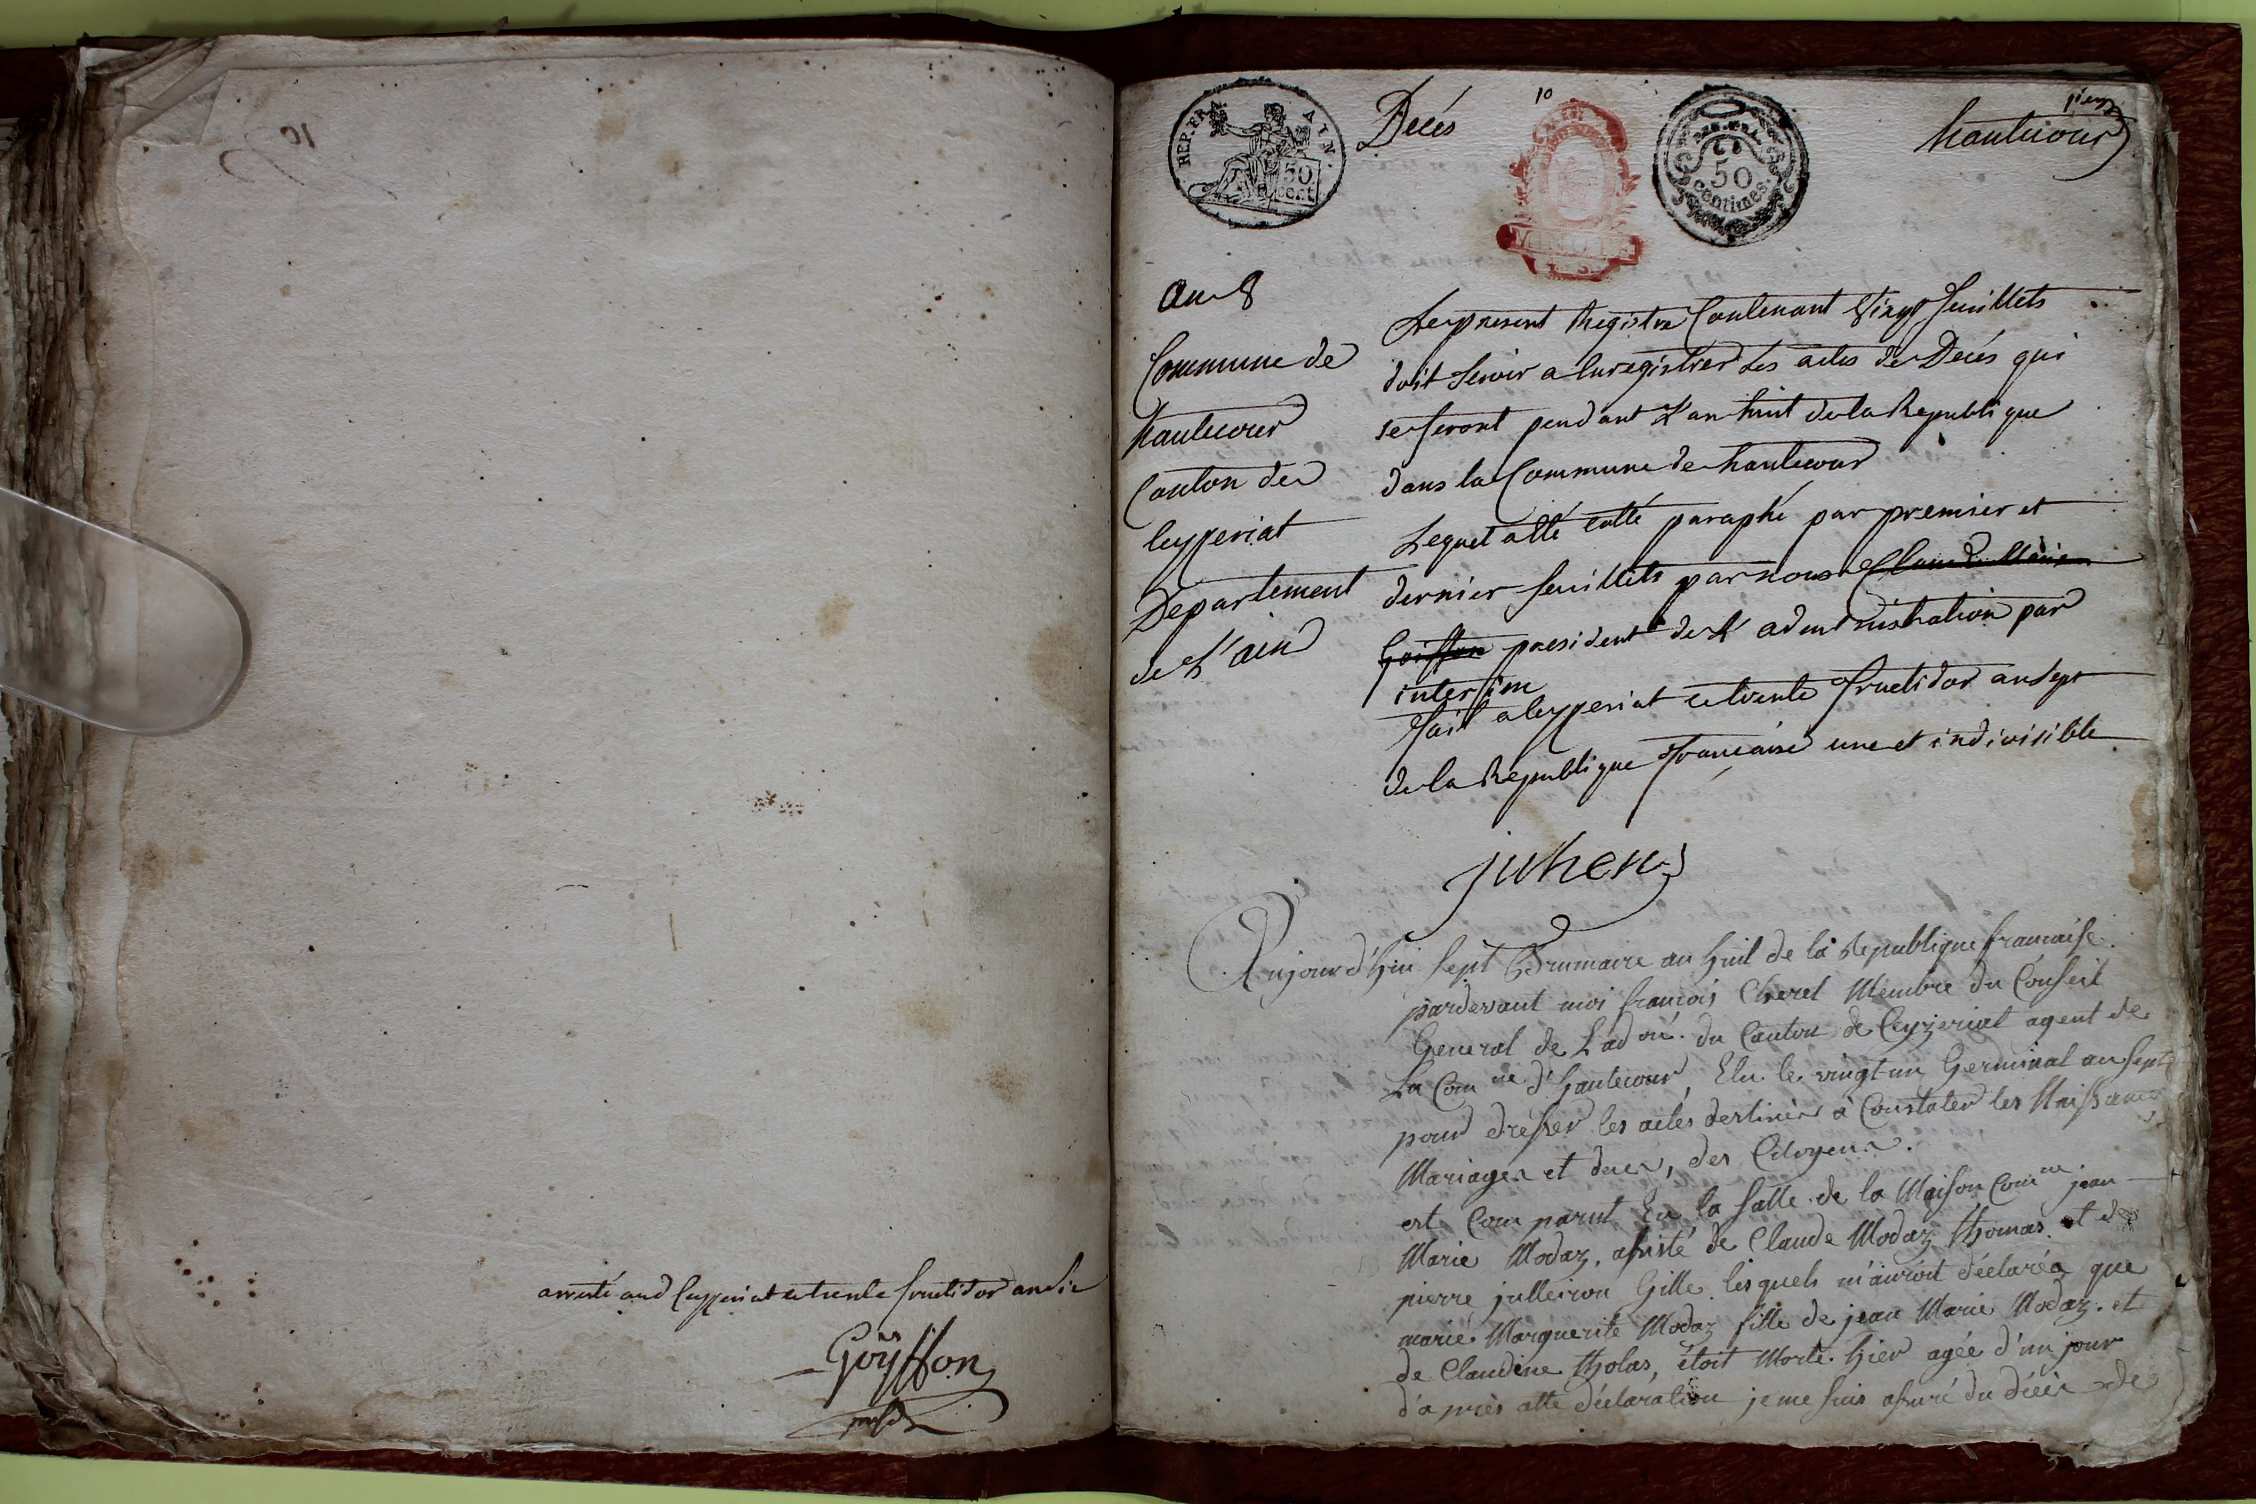 arresté aud Ceyzeriat ce trente fructidor an six
Goyffon
presdt
REP. FRA. AIN.
50
cent.
Decés
10
REP. FRA.
50
centimes.
1ier
hautecour
an 8
Commune de
hautecour
Canton de
Ceyzeriat
Departement
de L'ain
Le present Registre Contenant Vingt feuillets
doit servir a Enregistrer Les actes de Decés qui
se feront pendant L'an huit de la Republique
dans la Commune de hautecour
Lequel a été cotté paraphé par premier et
dernier feuillets par nous Claude Marie
Goiffon president de L'administration par
interim
fait a Ceyzeriat ce trente fructidor an sept
de la Republique francaise une et indivisible
juhen
Aujourd'hui sept Brumaire an huit de la Republique francaise.
pardevant moi francois Cheret Membre du Conseil
General de L'adon. du Canton de Ceyzeriat agent de
La Comne d'hautecour, Elu le vingt un Germinal an sept
pour dresser les actes destinés à Constater les Naissances
Mariages et deces, des Citoyens.
est Comparut En la salle de la Maison Comne jean
Marie Modaz, assisté de Claude Modaz thomas et de
pierre julleiron Gille. lesquels m'auroit déclaréa que
marie Marguerite Modaz fille de jean Marie Modaz. et
de Claudine tholas, étoit Morte hier agée d'un jour
d'après cette déclaration je me suis assuré du décès de